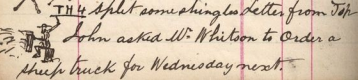 TH4 split some shingles Letter from Top
John asked Mr Whitson to Order a
sheep truck for Wednesday next